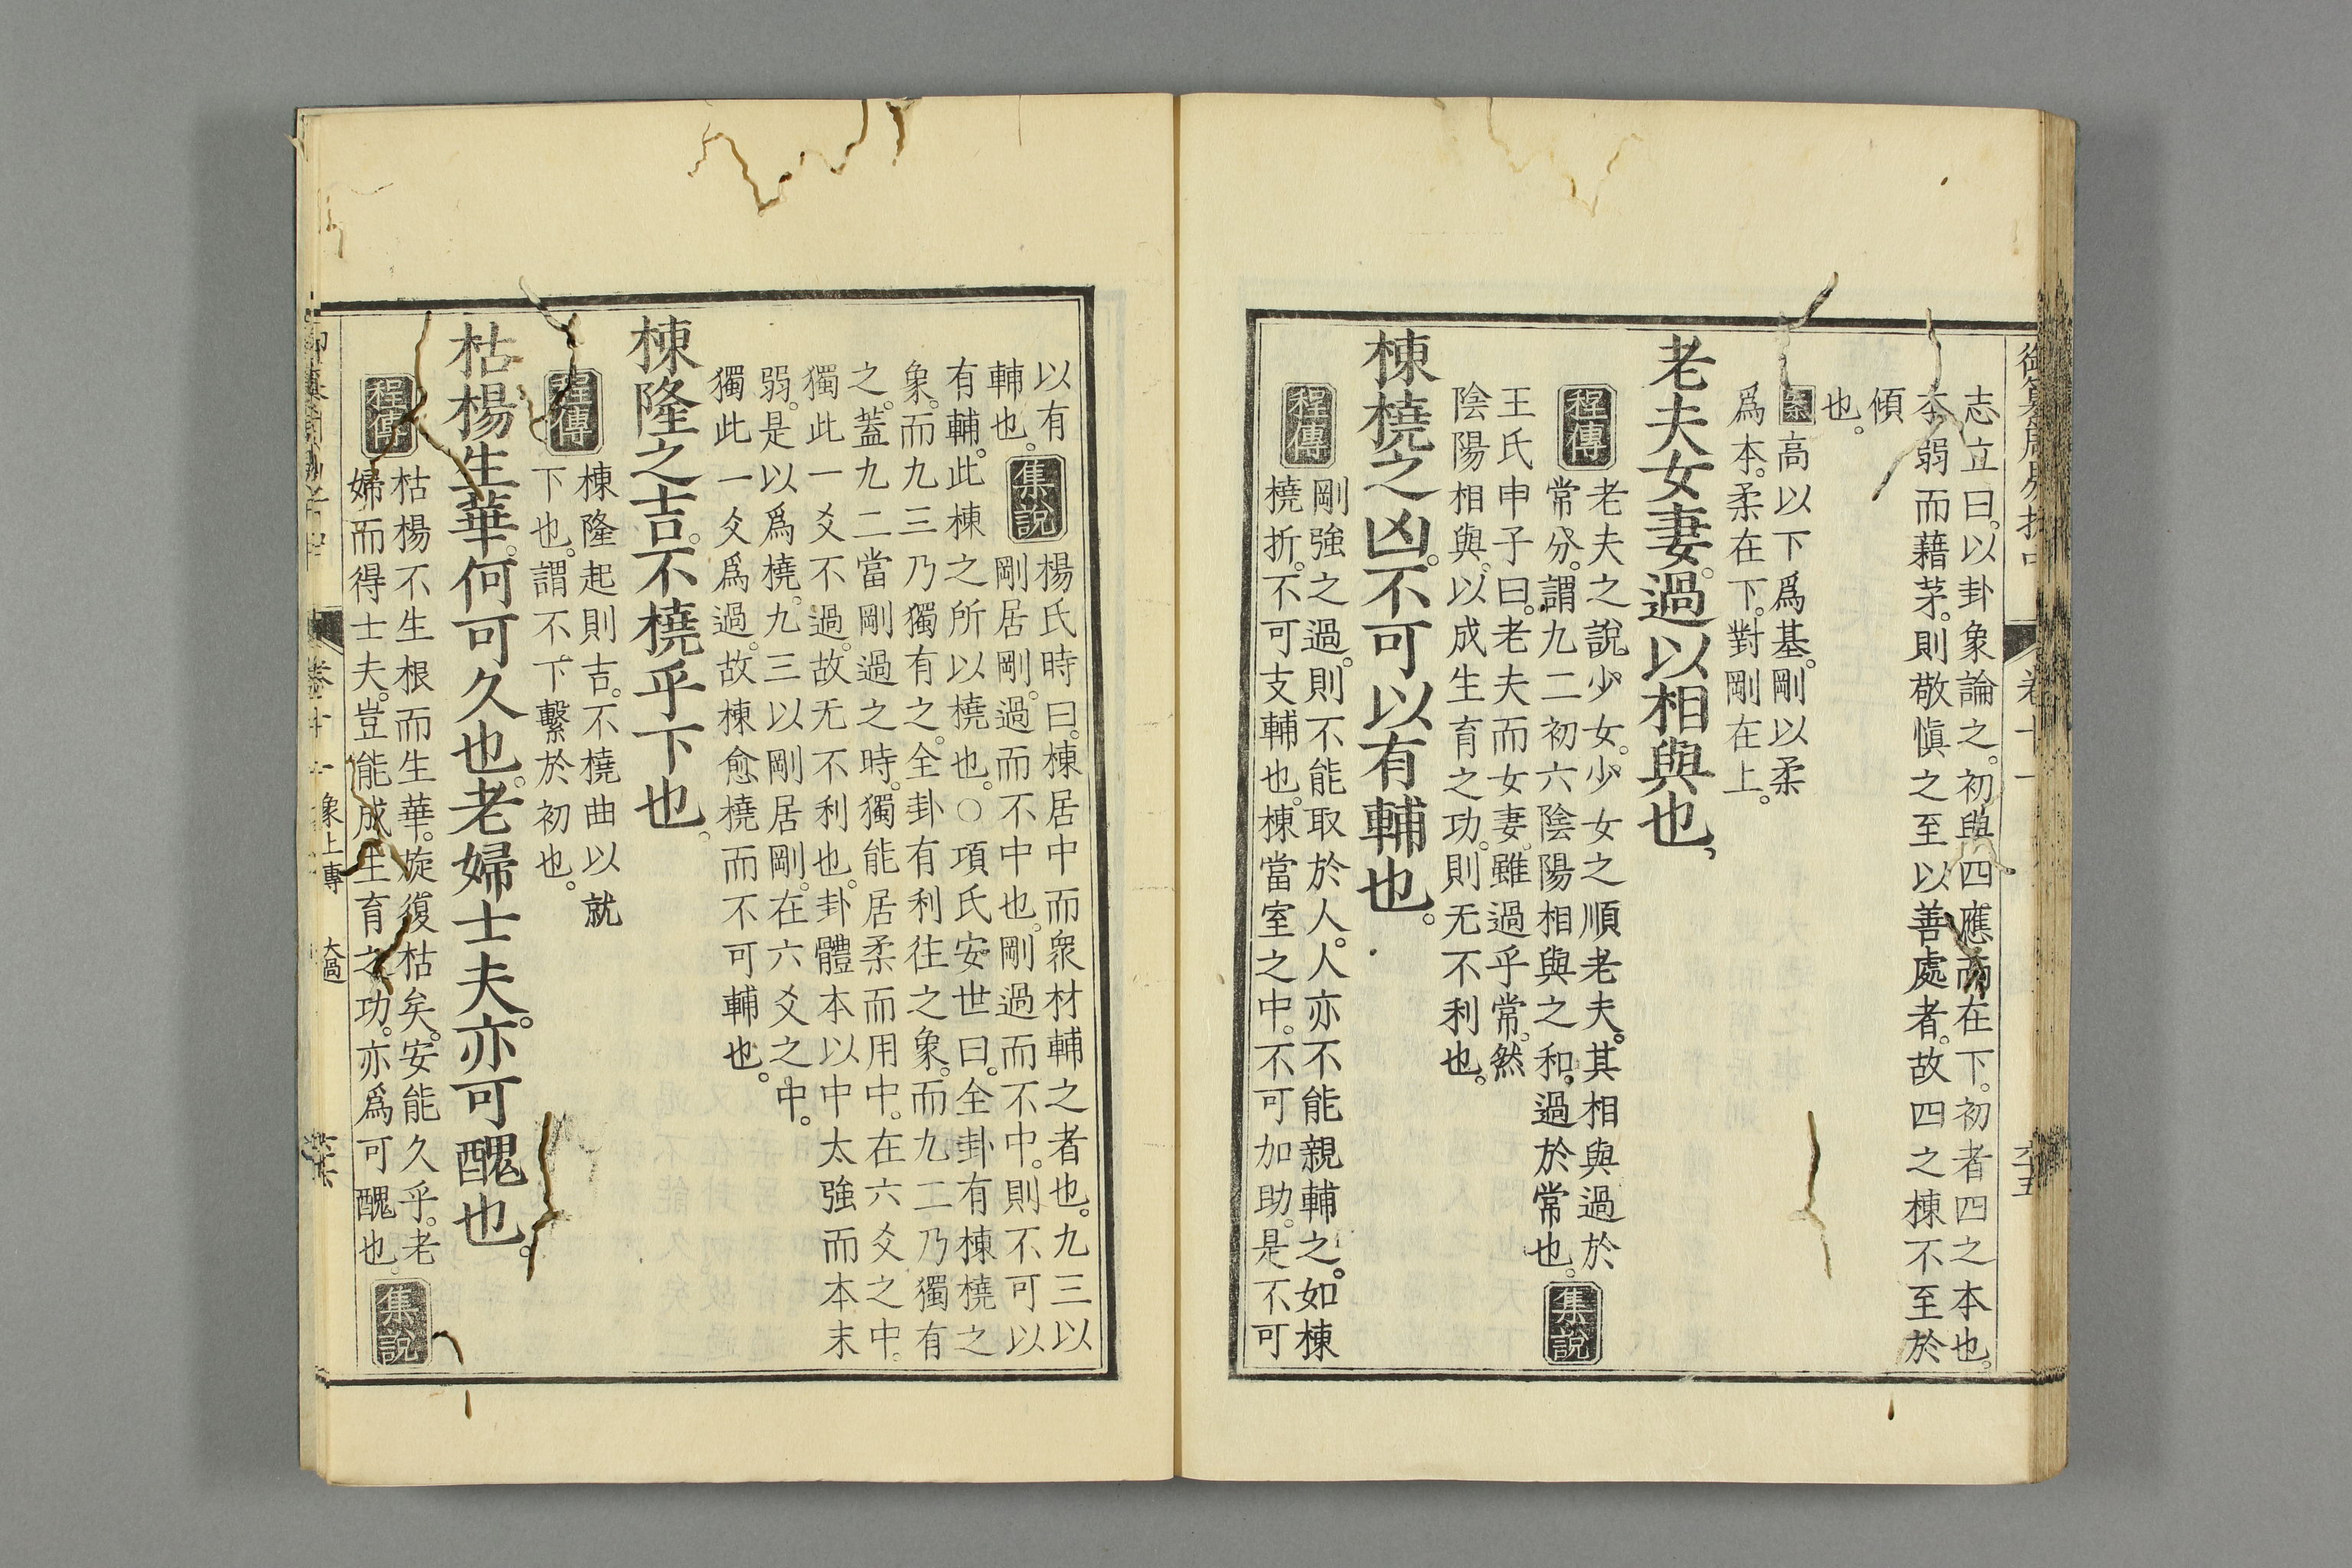 御纂周易折中
卷十一
六十五
志立曰。以卦象論之。初與四應而在下。初者四之本也。
本弱而藉茅。則敬慎之至以善處者。故四之棟不至於
傾
也。
案高以下爲基。剛以柔
爲本。柔在下。對剛在上。
老夫女妻。過以相與也。
程傳
老夫之說少女。少女之順老夫。其相與過於
常分。謂九二初六陰陽相與之和。過於常也。
集說
王氏申子曰。老夫而女妻。雖過乎常。然
陰陽相與。以成生育之功。則无不利也。
棟橈之凶。不可以有輔也。
程傳
剛強之過。則不能取於人。人亦不能親輔之。如棟
橈折。不可支輔也。棟當室之中。不可加助。是不可
以有
輔也。
集說
楊氏時曰。棟居中而衆材輔之者也。九三以
剛居剛。過而不中也。剛過而不中。則不可以
有輔。此棟之所以橈也。○項氏安世曰。全卦有棟橈之
象。而九三乃獨有之。全卦有利往之象。而九二乃獨有
之。蓋九二當剛過之時。獨能居柔而用中。在六爻之中。
獨此一爻不過。故无不利也。卦體本以中太強而本末
弱。是以爲橈。九三以剛居剛。在六爻之中。
獨此一爻爲過。故棟愈橈而不可輔也。
棟隆之吉。不橈乎下也。
程傳
棟隆起則吉。不橈曲以就
下也。謂不下繫於初也。
枯楊生華。何可久也。老婦士夫。亦可醜也。
程傳
枯楊不生根而生華。旋復枯矣。安能久乎。老
婦而得士夫。豈能成生育之功。亦爲可醜也。
集說
卷十一
象上傳
大過
六十六